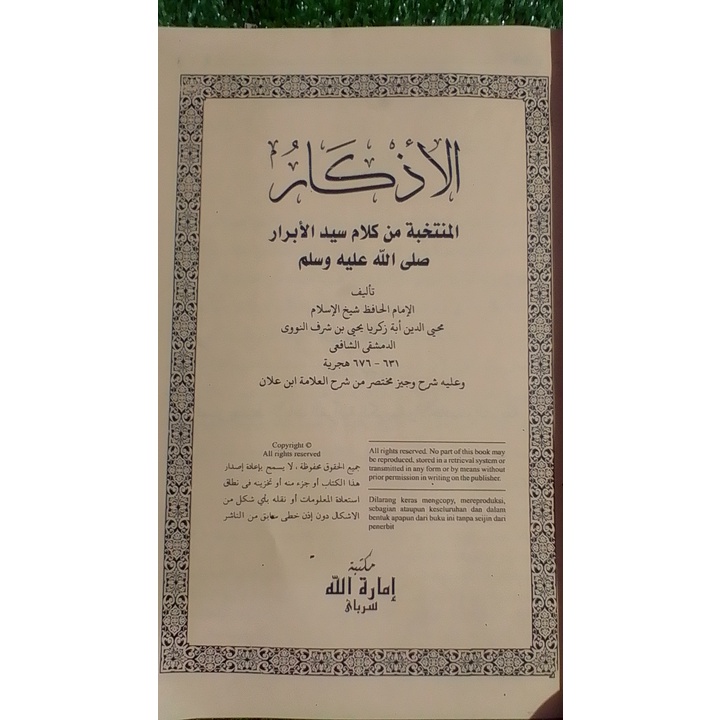 الأذكار
المنتخبة من كلام سيد الأبرار
صلى الله عليه وسلم
تأليف
الإمام الحافظ شيخ الإسلام
محيي الدين أبة زكريا يحيى بن شرف النووى
الدمشقى الشافعى
٦٣١ - ٦٧٦ هجرية
وعليه شرح وجيز مختصر من شرح العلامة ابن علان
Copyright ©
All rights reserved
جميع الحقوق محفوظة ، لا يسمح بإعادة إصدار
هذا الكتاب أو جزء منه أو تخزينه فى نطاق
استعادة المعلومات أو نقله بأي شكل من
الاشكال دون إذن خطى مسابق من الناشر
All rights reserved. No part of this book may
be reproduced, stored in a retrieval system or
transmitted in any form or by means without
prior permission in writing on the publisher.
Dilarang keras mengcopy, mereproduksi,
sebagian ataupun keseluruhan dan dalam
bentuk apapun dari buku ini tanpa seijin dari
penerbit
مكتبة
إمارة الله
سرباى